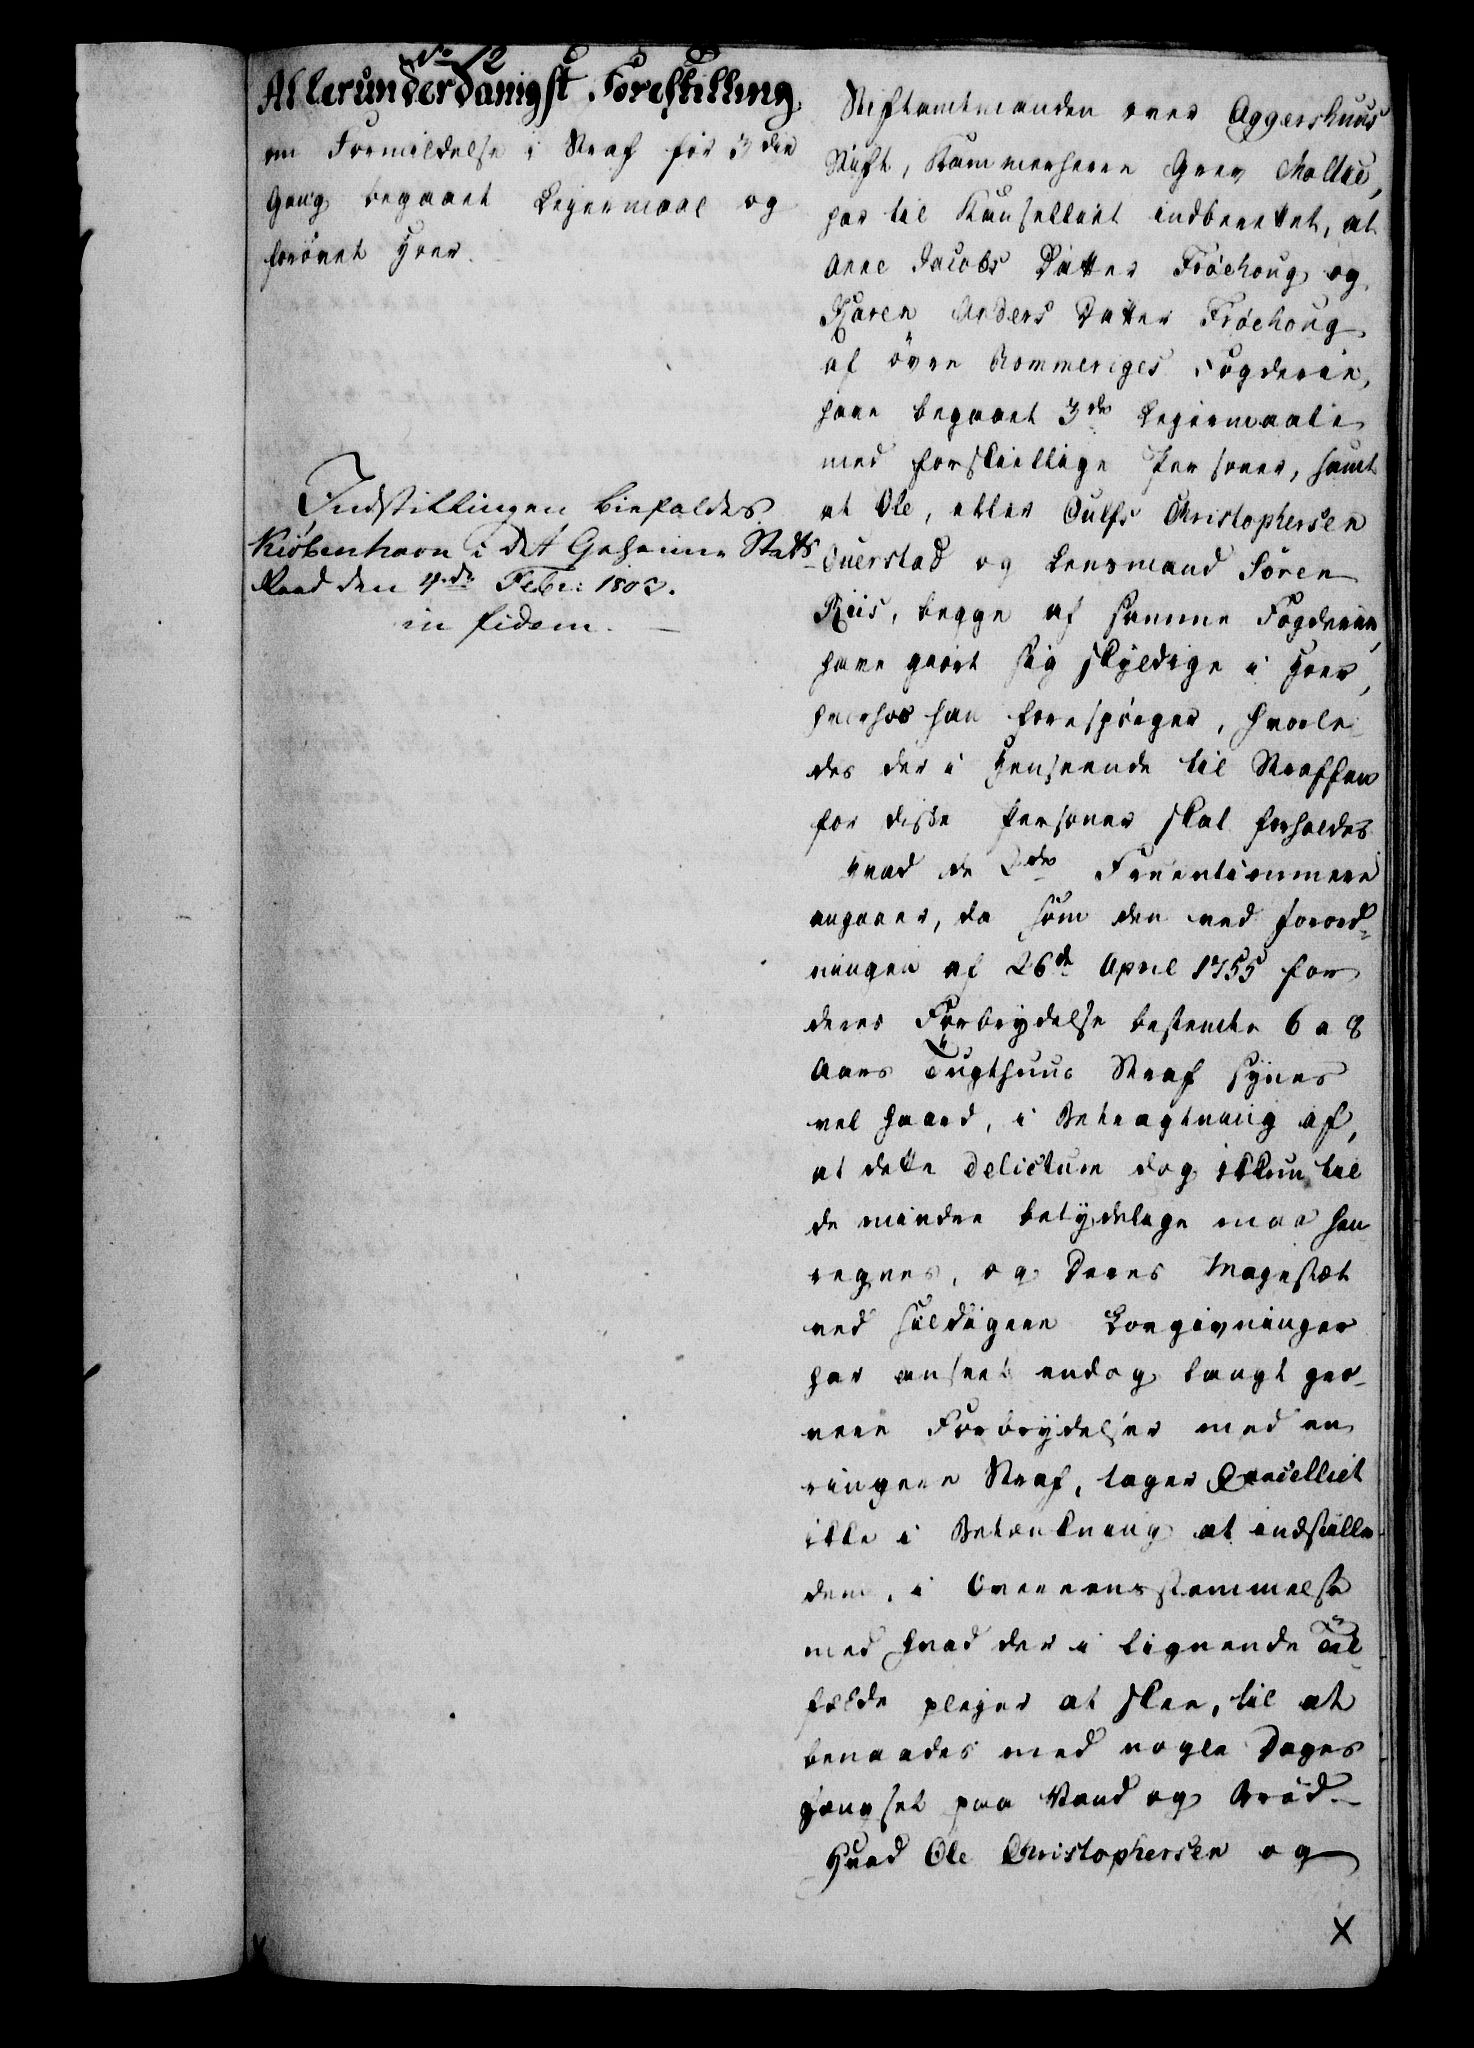 No 12
Allerunderdanigst Forestilling
om Formildelse i Straf for 3die
Gang begaaet Leiermaal og
forøvet Hoer.
Indstillingen biefaldes
Kiøbenhavn i Det Geheime Stats
Raad den 4de Febr: 1803.
in fidem.
Stiftamtmanden over Aggershuus
Stift, Kammerherre Grev Moltke,
har til Kanselliet indberettet, at
Anne Jacobs Datter Frøehoug og
Karen Anders Datter Frøehoug
af øvre Rommeriges Fogderie,
have begaaet 3de Leiermaale
med forskiellige Personer, samt
at Ole, eller Oulfs Christophersen
Ouerstad og Lensmand Søren
Riis, begge af samme Fogderie,
have giort sig skyldige i Hoer,
hvorhos han forespørger, hvorle-
des der i Henseende til Straffen
for disse Personer skal forholdes
Hvad de 2de Fruentimmere
angaaer, da som den ved Forord-
ningen af 26de April 1755 for
deres Forbrydelse bestemte 6 a 8
Aars Tugthuus Straf synes
vel haard, i Betragtning af,
at dette Delictum dog ikkun til
de mindre betydelige maa hen
regnes, og Deres Majestæt
ved sildigere Lovgivninger
har anseet endog langt gro-
vere Forbrydelser med en
ringere Straf, tager Cancelliet
ikke i Betænkning at indstille
dem, i Overeensstemmelse
med hvad der i lignende Til-
fælde plejer at skee, til at
benaades med nogle Dages
Fængsel paa Vand og Brød.
Hvad Ole Christophersen og
X